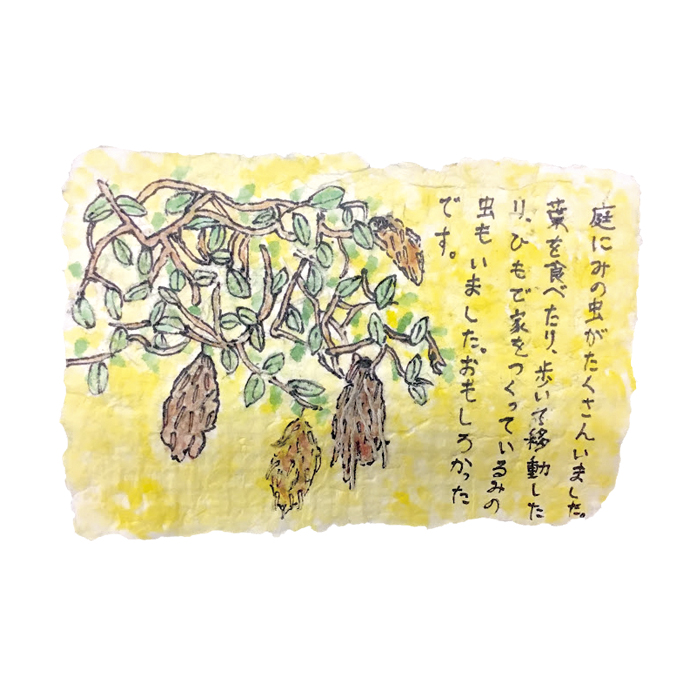 庭にみの虫がたくさんいました。
葉を食べたり、歩いて移動した
り、ひもで家をつくっているみの
虫もいました。おもしろかった
です。